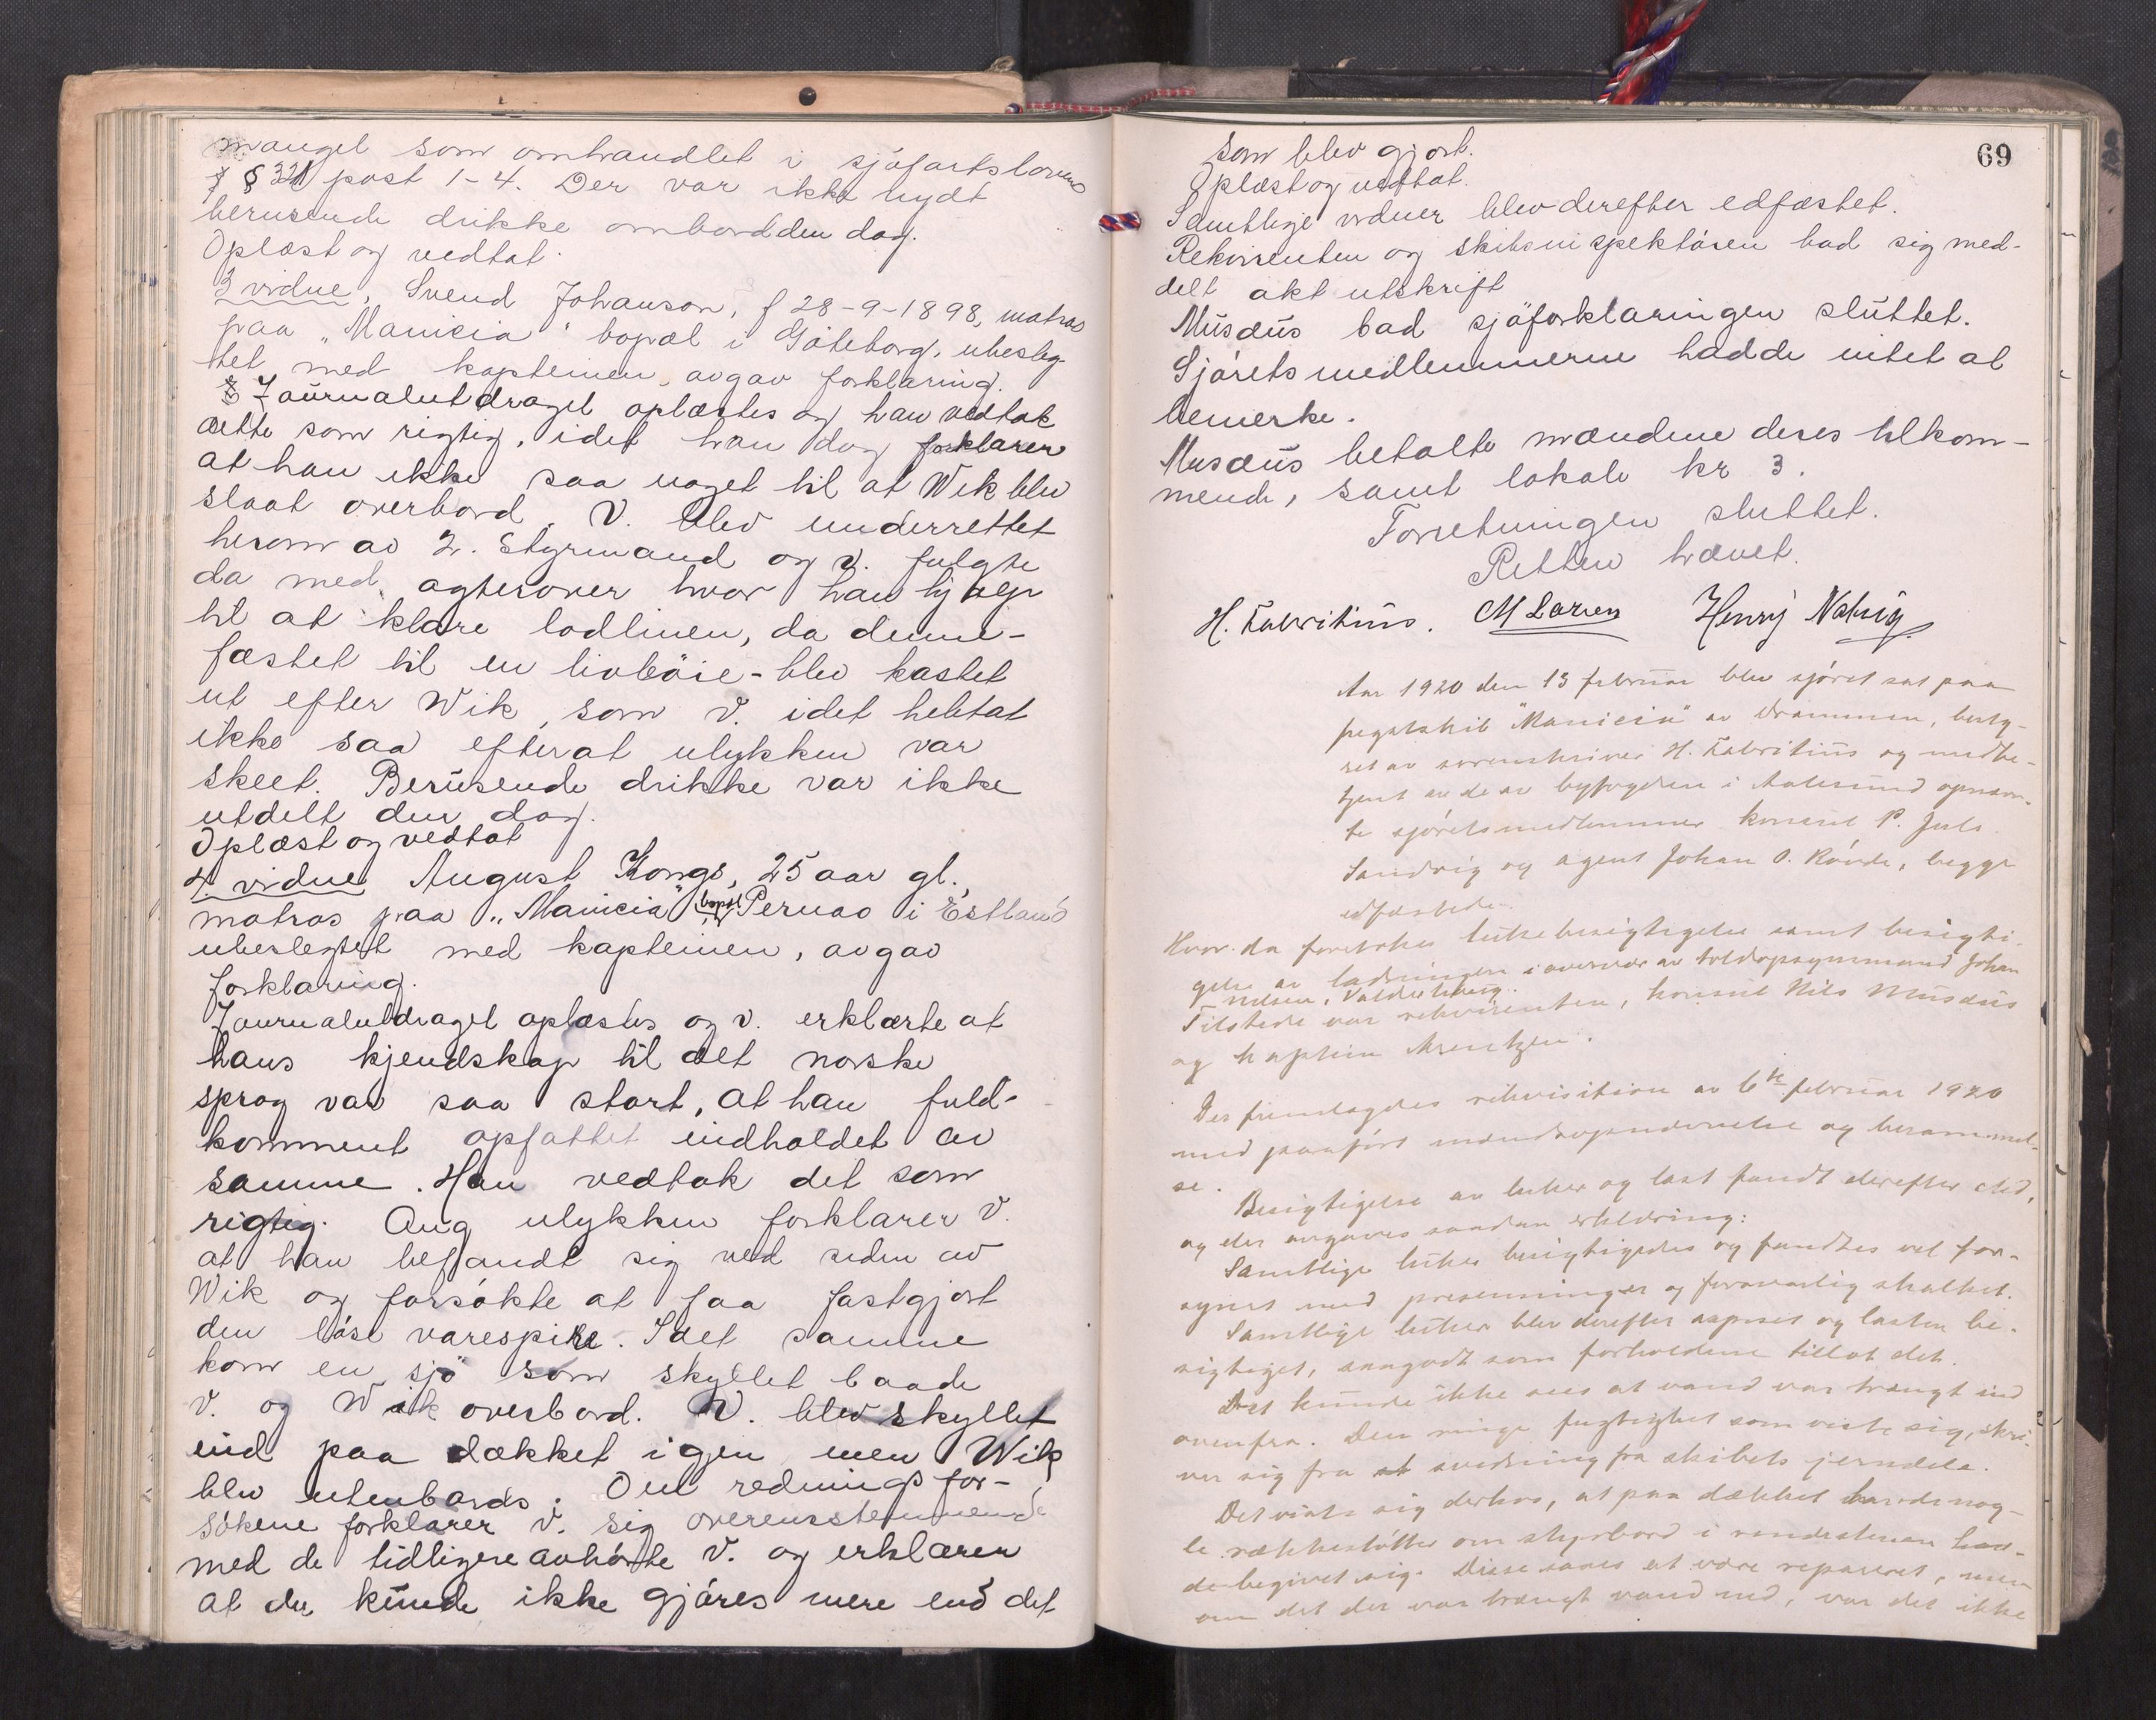 mangel som omhandlet i sjøfartslovens
§ 321 post 1-4. Der var ikke nydt
berusende drikke ombord den dag.
Oplæst og vedtat.
3 vidne, Svend Johanson, f 28-9-1898, matros
paa "Manicia" bopæl i Göteborg, ubeslæg-
tet med kapteinen, avgav forklaring.
Journalutdraget oplæstes og han vedtok
dette som rigtig, idet han dog forklarer
at han ikke saa noget til at Wik blev
slaat overbord. V. blev underrettet
herom av 2. Styrmand og v. fulgte
da med agterover hvor han hjalp
til at klare lodlinen, da denne -
fæstet til en livbøie - blev kastet
ut efter Wik, som V. idet heletat
ikke saa efterat ulykken var
skeet. Berusende drikke var ikke
utdelt den dag.
Oplæst og vedtat
4 vidne August Kongs, 25 aar gl.,
matros paa "Manicia" bopæl Pernao i Estland
ubeslegtet med kapteinen, avgav
forklaring.
Journalutdraget oplæstes og v. erklærte at
hans kjendskap til det norske
sprog var saa stort, at han fuld-
komment opfattet indholdet av
samme. Han vedtok det som
rigtig. Ang ulykken forklarer V.
at han befandt sig ved siden av
Wik og forsøkte at faa fastgjort
den løse varespire. Idet samme
kom en sjø som skyllet baade
V. og Wik overbord. V. blev skyllet
ind paa dækket igjen men Wik
blev utenbords. Om rednings for-
søkene forklarer V. sig overensstemmende
med de tidligere avhørte V. og erklærer
at der kunde ikke gjøres mere end det
69
som blev gjort.
Oplæst og vedtat.
Samtlige vidner blev derefter edfæstet.
Rekvirenten og skibsinspektøren bad sig med-
delt akt utskrift
Musæus bad sjøforklaringen sluttet.
Sjøretsmedlemmerne hadde intet at
bemerke.
Musæus betalte mændene deres tilkom-
mende, samt lokale kr 3.
Forretningen sluttet.
Retten hævet.
H. Fabritius. M Larsen Henry Natvig
Aar 1920 den 13 februar blev sjøret sat paa
fregatskib "Manicia" av Drammen, besty-
ret av sorenskriver H. Fabritius og medbe-
tjent av de av byfogden i Aalesund opnævn-
te sjøretsmedlemmer konsul P. Juls
Sandvig og agent Johan O. Rønde, begge
edfæstede.
Hvor da foretokes lukebesigtigelse samt besigti-
gelse av ladningen i overvær av toldopsynsmand Johan
Nilsen, Valderhaug.
Tilstede var rekvirenten, konsul Nils Musæus
og kaptein Arentzen.
Der fremlagdes rekvisition av 6te februar 1920
med paaført mændsopnævnelse og berammel-
se.
Besigtigelse av luker og last fandt derefter sted,
og der avgaves saadan erklæring:
Samtlige luker besigtigedes og fandtes vel for-
synet med presenninger og forsvarlig skalket.
Samtlige luker blev derefter aapnet og lasten be-
sigtiget, saagodt som forholdene tillot det.
Det kunde ikke sees at vand var trængt ind
ovenfra. Den ringe fugtighet som viste sig, skri-
ver sig fra svedning fra skibets jerndele.
Det viste sig derhos, at paa dækket havde nog-
le rækkestøtter om styrbord i rendestenen hav-
de begivet sig. Disse saaes at være reparert, men
om det der var trængt vand ned, var det ikke